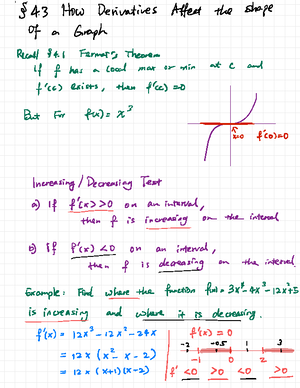 §4.3 How Derivatives Affect the shape
of a Graph
Recall §4.1 Fermat's Theorem
If f has a local max or min at c and
f'(c) exists, then f'(c)=0
But For f(x) = x³
x=0 f'(0)=0
Increasing/Decreasing Test
a) If f'(x)>0 on an interval,
then f is increasing on the interval
b) If f'(x)<0 on an interval,
then f is decreasing on the interval
Example: Find where the function f(x)=3x⁴-4x³-12x²+5
is increasing and where it is decreasing.
f'(x) = 12x³-12x²-24x
= 12x (x²-x-2)
= 12x (x+1)(x-2)
f'(x) = 0
-2 -0.5 1 3
-1 0 2
f' <0 >0 <0 >0